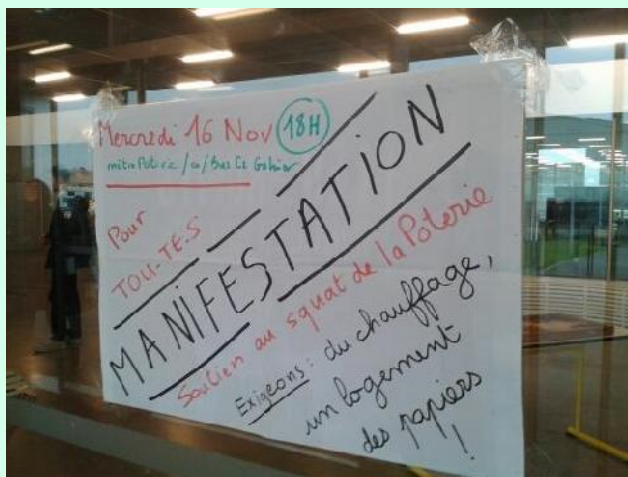 Mercredi 16 Nov 18H
métro Poterie / Bus C2
Pour
TOU-TE-S
MANIFESTATION
Soutien au squat de la Poterie
Exigeons : du chauffage,
un logement
des papiers
!